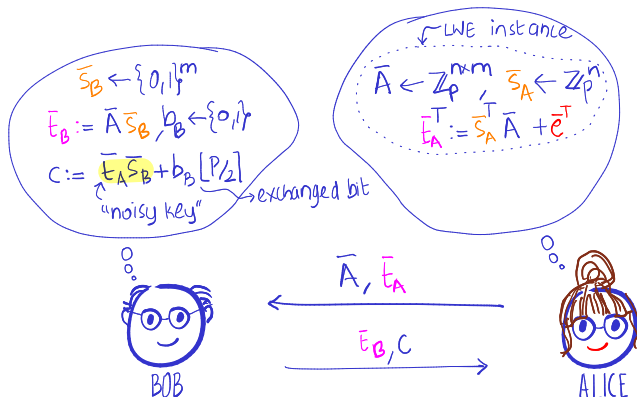 S̄_B ← {0,1}^m
t̄_B := Ā S̄_B, b_B ← {0,1}
C := t̄_A S̄_B + b_B ⌊P/2⌋
"noisy key"
exchanged bit
LWE instance
Ā ← ℤ_p^{n×m}, s̄_A ← ℤ_p^n
t̄_A^T := s̄_A^T Ā + ē^T
Ā, t̄_A
t̄_B, C
BOB
ALICE